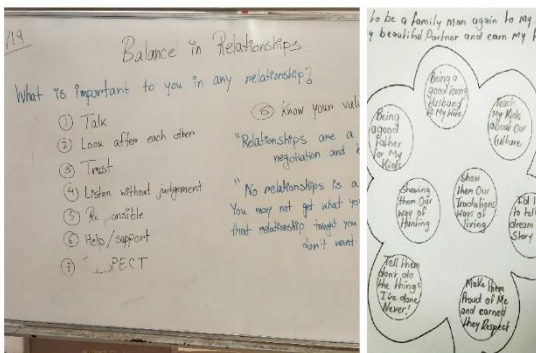 /19
Balance in Relationships
What is important to you in any relationship?
① Talk
② Look after each other
③ Trust
④ Listen without judgement
⑤ Re onsible
⑥ Help/support
⑦ PECT
⑧ Know your val
"Relationships are a
negotiation and
"No relationships is a
You may not get what yo
that relationship taught you
don't want
to be a family man again to my
y beautiful Partner and earn my
Being a
good loving
Husband
to My Wife
Teach
My Kids
about Our
Culture
Being
a good
Father
for My
Kids
Showing
them Our
Way of
Hunting
Show
them Our
Traditions
Ways of
living
to tell
dream
Story
Tell them
don't do
the things
I've done
Never!
Make them
Proud of Me
and earned
they Respect